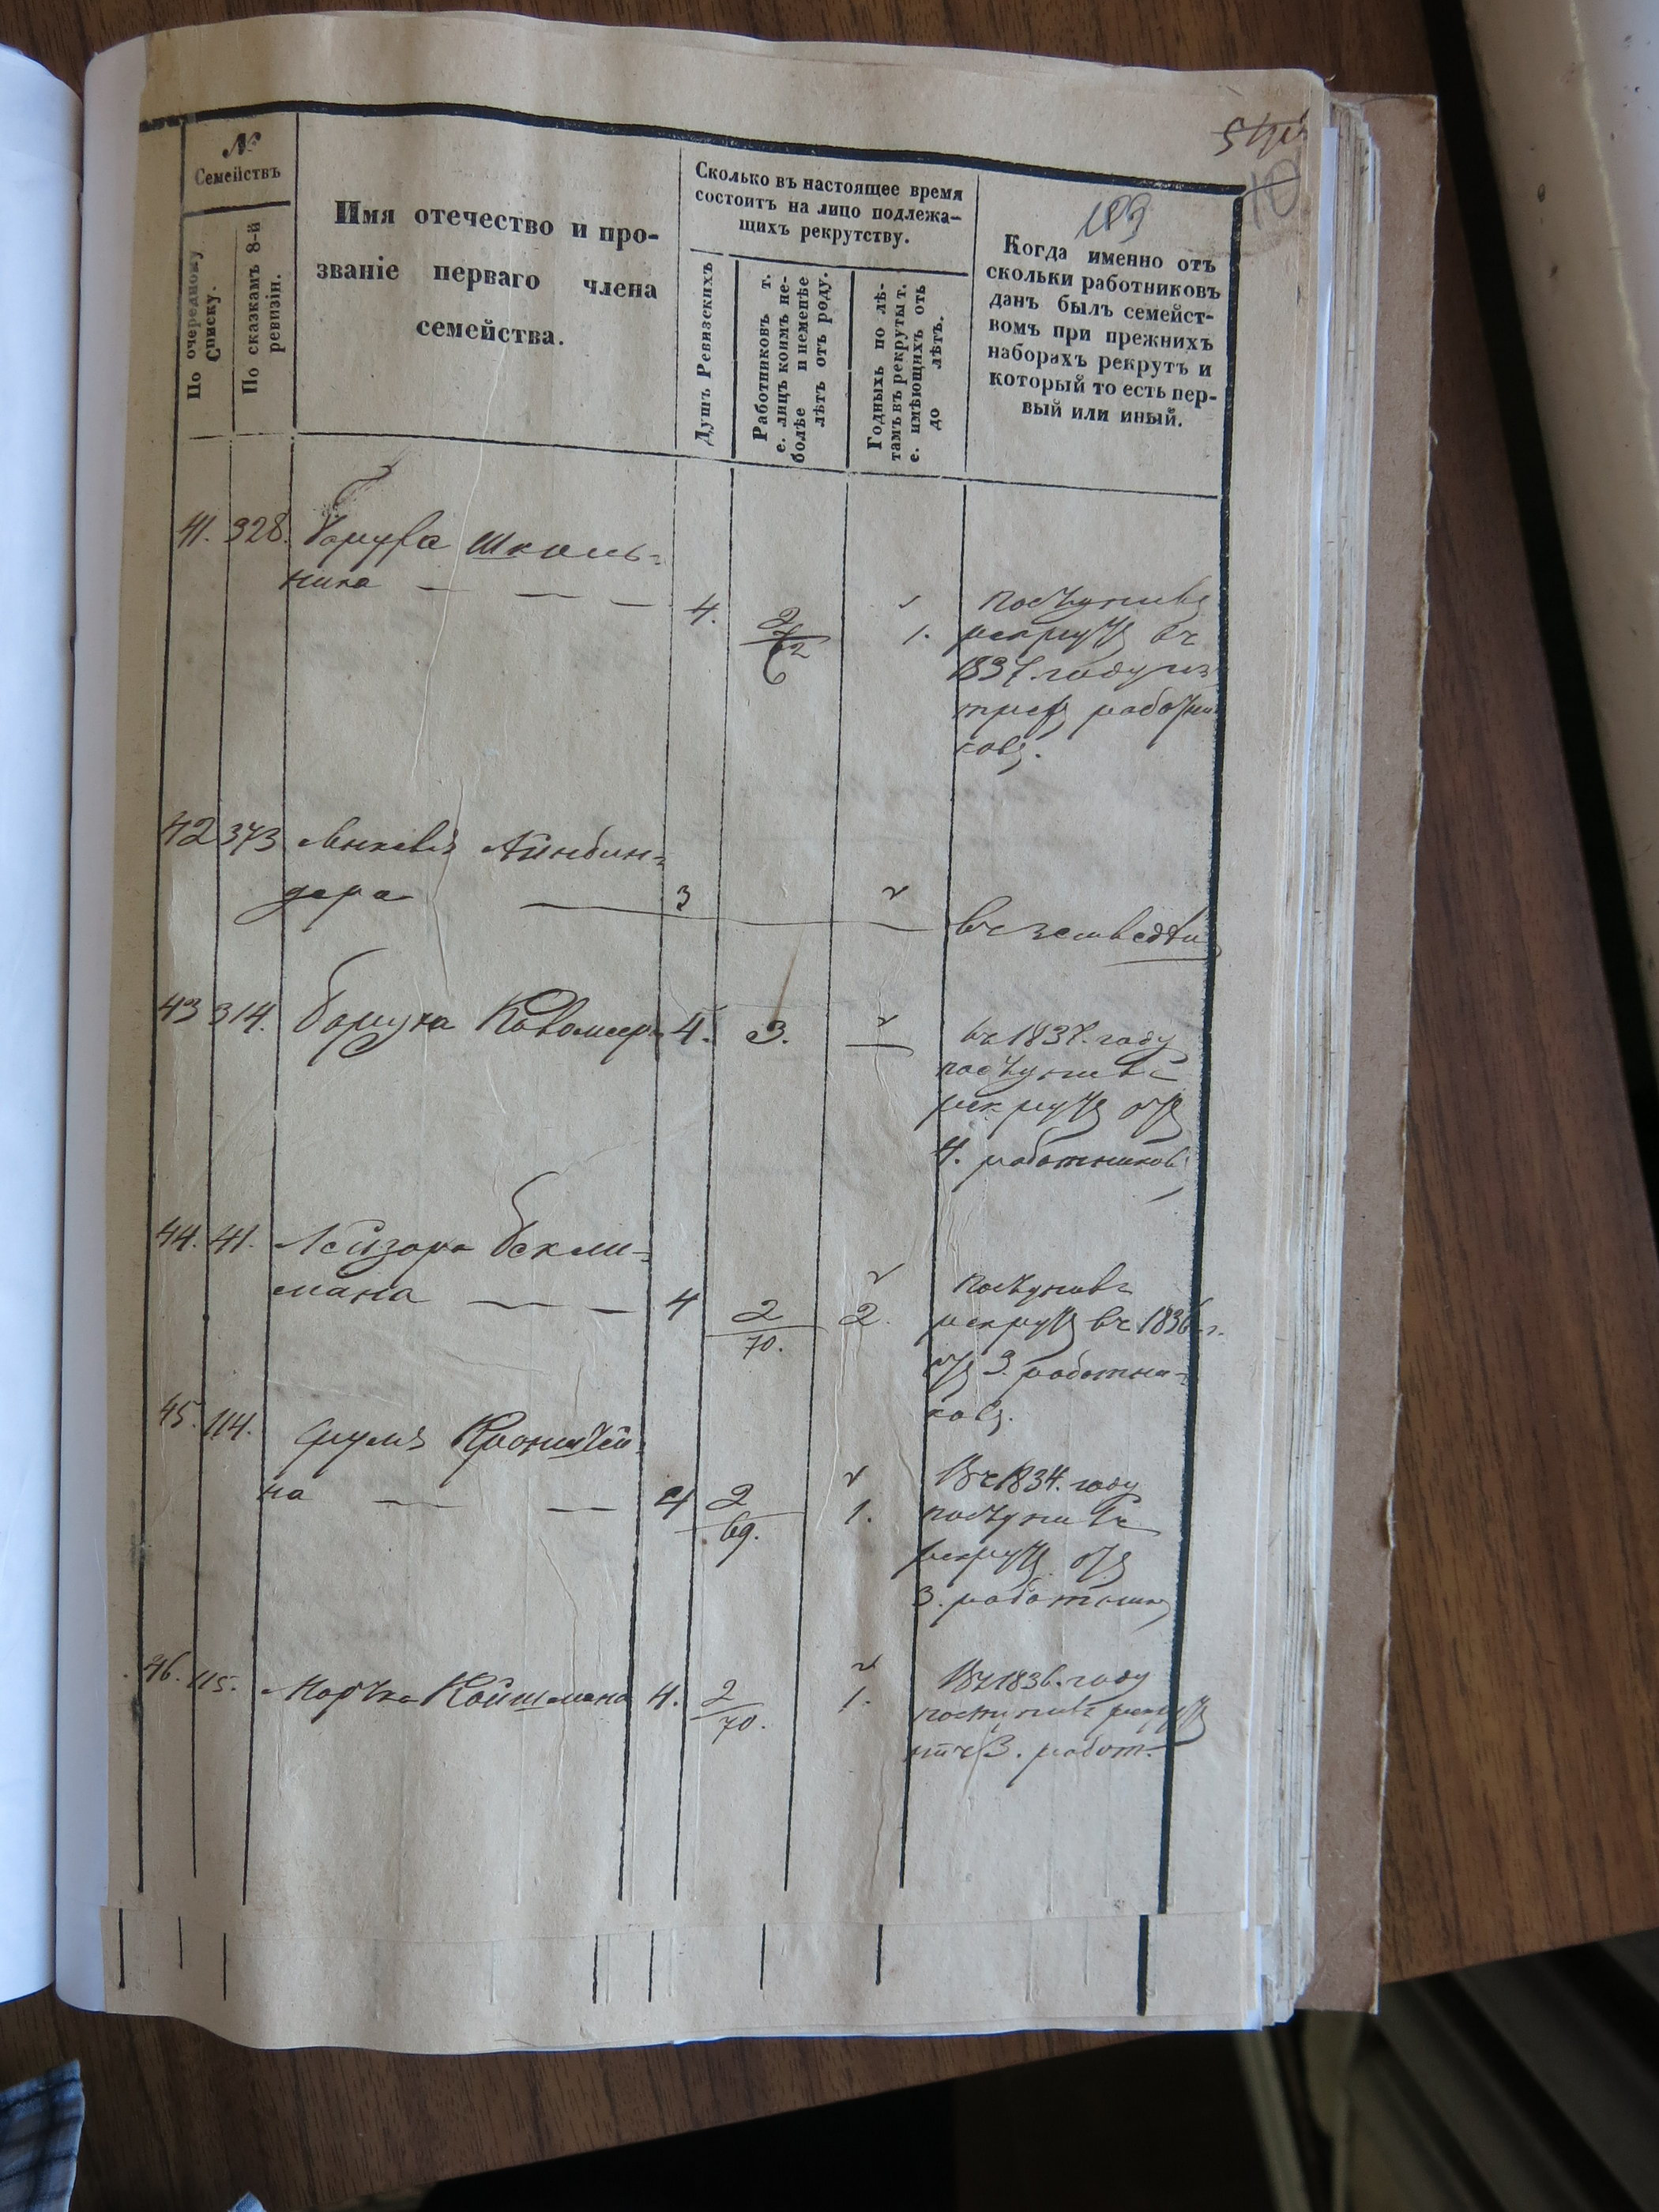 183
№
Семействъ
По очередному
Списку.
По сказкамъ 8-й
ревизіи.
Имя отечество и про-
званіе перваго члена
семейства.
Сколько въ настоящее время
состоитъ на лицо подлежа-
щихъ рекрутству.
Душъ Ревизскихъ
Работниковъ т.
е. лицъ коимъ не-
болѣе и неменѣе
лѣтъ отъ роду.
Годныхъ по лѣ-
тамъ въ рекруты т.
е. имѣющихъ отъ
до лѣтъ.
Когда именно отъ
скольки работниковъ
данъ былъ семейст-
вомъ при прежнихъ
наборахъ рекрутъ и
который то есть пер-
вый или иный.
41. 328. Боруха Школь-
ника 4. 1.
поступилъ
рекрутъ въ
1837. году из
трехъ работни
ковъ.
42 373 Айнбин-
дера 3
43 314. Боруха 4. 3.
въ 1837. году
поступилъ
рекрутъ отъ
4. работниковъ
44. 41. Лейзора Бекли-
мана 4 2/70. 2.
поступилъ
рекрутъ въ 1836 г.
отъ 3. работни-
ковъ.
45. 114. Сруля Кронштей-
на 4 2/69. 1.
Въ 1834. году
поступилъ
рекрутъ отъ
3. работник
46. 115. Мортка Койшмана 4. 2/70. 1.
Въ 1836. году
поступилъ рекрутъ
изъ 3. работ.